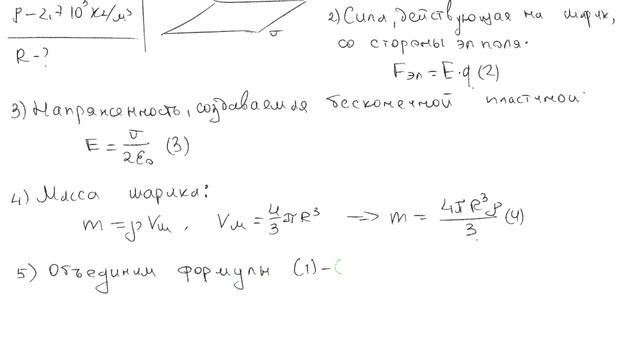 ρ-2,7·10³ кг/м³
R-?
σ
2) Сила, действующая на шарик,
со стороны эл поля.
Fэл = E·q (2)
3) Напряженность, создаваемая бесконечной пластиной:
E = σ/2ε₀ (3)
4) Масса шарика:
m = ρVш, Vш = 4/3 πR³ => m = 4πR³ρ/3 (4)
5) Объединим формулы (1)-(